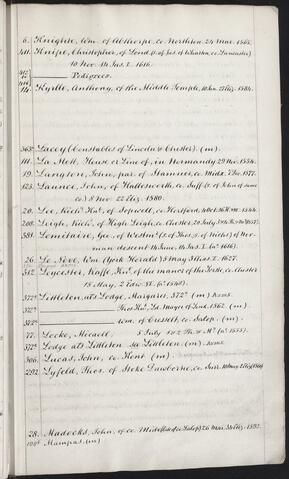 6. Knighte, Wm. of Althorpe, co. Northton. 24 Mar. 1562.
411. Knipe, Christopher, of Lond. (s. of Jas. of Wharton, co. Lancaster)
10 Nov. 14 Jas. I. 1616.
Pedigrees.
14. Kyrlle, Anthony, of the Middle Temple, 10 Jan. 27 Eliz. 1584.
363b Lacey (Constables of Lincoln & Chester). (m).
111. La Mott, House or Line of, in Normandy 29 Nov. 1554.
19. Langton, John, par. of Stanmer, co. Midx. 1577.
123. Launce, John, of Hallesworth, co. Suff. (s. of John of same
co.) 8 Nov. 22 Eliz. 1580.
20. Lee, Rich. Knt. of Sopwell, co. Hertford, 4 Oct. 36 H. 1544.
208. Leigh, Rich. of High Leigh, co. Chester, 20 July,
381. Lemitaire, Geo. of Westmr. (s. of Thos., s. of Rich.) of Nor-
man descent 14 June, 14 Jas. I. (1616).
26. Le Neve, Wm. (York Herald) 5 May 3 Chas. I. 1627.
512 Leycester, Raffe, Knt. of the manor of the Tofte, co. Chester
15 May, 2 Edw. VI. (1548).
372b Littleton, als Lodge, Margaret, 372b (m) None.
372b Thos. Knt., Ld. Mayor of Lond. 1562. (m)
372b Wm. of Cresett, co. Salop. (m).
77. Locke, Micaell, 5 July 1 & 2 Ph. & My. (1555).
372b Lodge als Littleton see Littleton (m). None.
506. Lucas, John, co. Kent (m).
292. Lyfeld, Thos. of Stoke Dawborne, co. Surr. 10 May 2 Eliz. 1560
28. Madocks, John, of co. Midx. (s. of co. Salop) 26 Mar. 34 Eliz. 1592.
Mampas (m)